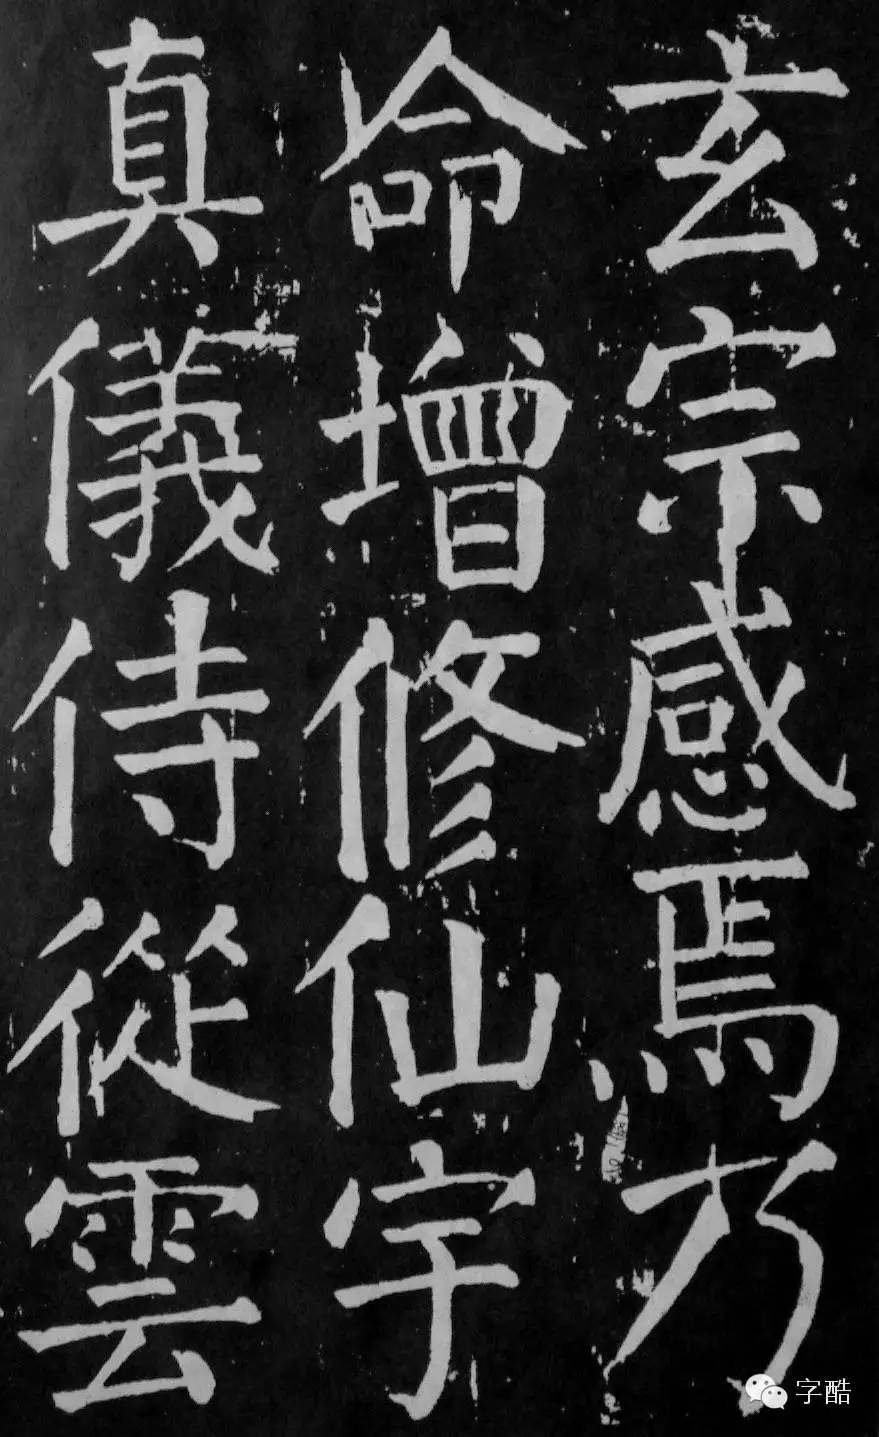 玄宗感焉乃
命增修仙宇
真儀侍從雲
字酷